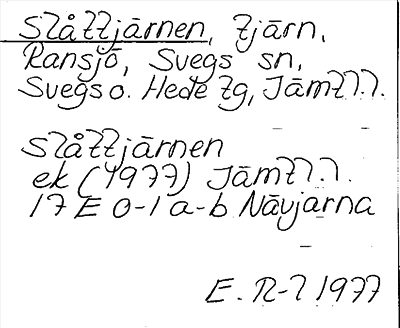 Slåttjärnen, tjärn,
Ransjö, Svegs sn,
Svegs o. Hede tg, Jämtl.l.
Slåttjärnen
ek (1977) Jämtl.l.
17 E 0-1 a-b Nävjarna
E. R-l 1977